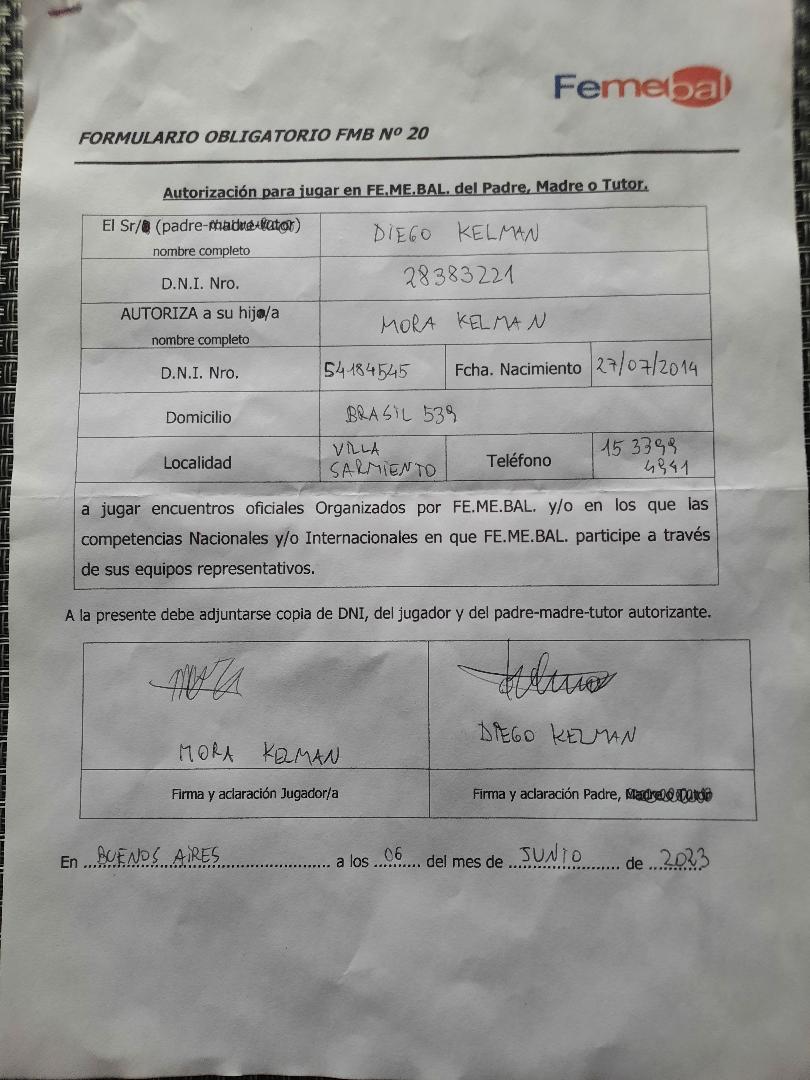 Femebal
FORMULARIO OBLIGATORIO FMB Nº 20
Autorización para jugar en FE.ME.BAL. del Padre, Madre o Tutor.
El Sr/a (padre-madre-tutor) DIEGO KELMAN
nombre completo
D.N.I. Nro. 28383221
AUTORIZA a su hijo/a MORA KELMAN
nombre completo
D.N.I. Nro. 54184545 Fcha. Nacimiento 27/07/2014
Domicilio BRASIL 539
Localidad VILLA SARMIENTO Teléfono 15 3399 4941
a jugar encuentros oficiales Organizados por FE.ME.BAL. y/o en los que las
competencias Nacionales y/o Internacionales en que FE.ME.BAL. participe a través
de sus equipos representativos.
A la presente debe adjuntarse copia de DNI, del jugador y del padre-madre-tutor autorizante.
MORA KELMAN DIEGO KELMAN
Firma y aclaración Jugador/a Firma y aclaración Padre, Madre o Tutor
En BUENOS AIRES a los 06 del mes de JUNIO de 2023